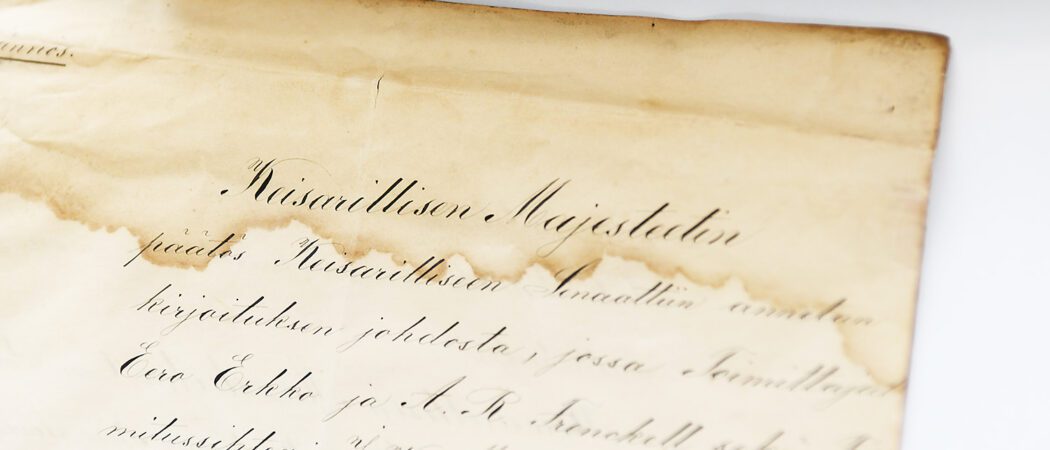 Keisarillisen Majesteetin
päätös Keisarilliseen Senaattiin annetun
kirjoituksen johdosta, jossa Toimittajat
Eero Erkko ja A. R. Frenckell